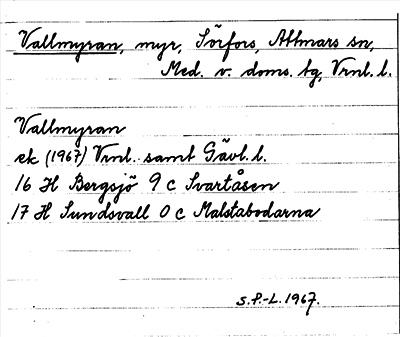 Vallmyran, myr, Sörfors, Attmars sn,
Med. v. doms. tg, Vrnl. l.
Vallmyran
ek (1967) Vrnl. samt Gävl. l.
16 H Bergsjö 9 c Svartåsen
17 H Sundsvall 0 c Malstabodarna
S.P.-L. 1967.